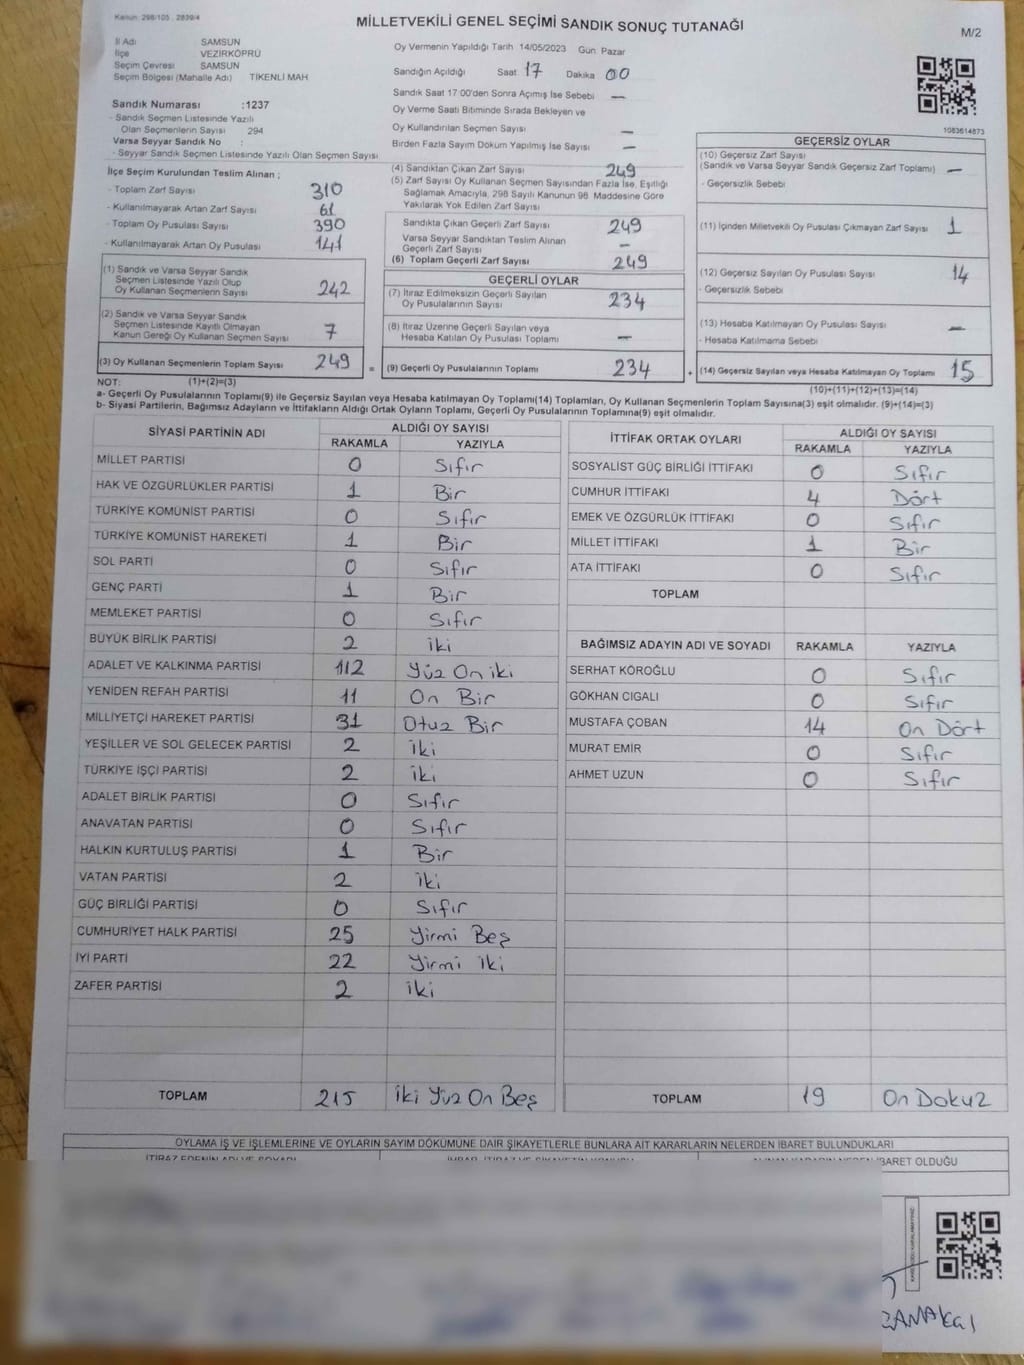 Kanun: 298/105 , 2839/4
MİLLETVEKİLİ GENEL SEÇİMİ SANDIK SONUÇ TUTANAĞI
M/2
İl Adı SAMSUN
İlçe VEZİRKÖPRÜ
Seçim Çevresi SAMSUN
Seçim Bölgesi (Mahalle Adı) TİKENLİ MAH
Sandık Numarası :1237
- Sandık Seçmen Listesinde Yazılı
Olan Seçmenlerin Sayısı 294
Varsa Seyyar Sandık No :
- Seyyar Sandık Seçmen Listesinde Yazılı Olan Seçmen Sayısı
Oy Vermenin Yapıldığı Tarih 14/05/2023 Gün Pazar
Sandığın Açıldığı Saat 17 Dakika 00
Sandık Saat 17:00'den Sonra Açımış İse Sebebi —
Oy Verme Saati Bitiminde Sırada Bekleyen ve
Oy Kullandırılan Seçmen Sayısı —
Birden Fazla Sayım Döküm Yapılmış İse Sayısı —
1083614873
İlçe Seçim Kurulundan Teslim Alınan ;
- Toplam Zarf Sayısı 310
- Kullanılmayarak Artan Zarf Sayısı 61
- Toplam Oy Pusulası Sayısı 390
- Kullanılmayarak Artan Oy Pusulası 141
(1) Sandık ve Varsa Seyyar Sandık
Seçmen Listesinde Yazılı Olup
Oy Kullanan Seçmenlerin Sayısı 242
(2) Sandık ve Varsa Seyyar Sandık
Seçmen Listesinde Kayıtlı Olmayan
Kanun Gereği Oy Kullanan Seçmen Sayısı 7
(3) Oy Kullanan Seçmenlerin Toplam Sayısı 249 =
(4) Sandıktan Çıkan Zarf Sayısı 249
(5) Zarf Sayısı Oy Kullanan Seçmen Sayısından Fazla İse, Eşitliği
Sağlamak Amacıyla, 298 Sayılı Kanunun 98. Maddesine Göre
Yakılarak Yok Edilen Zarf Sayısı
Sandıkta Çıkan Geçerli Zarf Sayısı 249
Varsa Seyyar Sandıktan Teslim Alınan
Geçerli Zarf Sayısı —
(6) Toplam Geçerli Zarf Sayısı 249
GEÇERLİ OYLAR
(7) İtiraz Edilmeksizin Geçerli Sayılan
Oy Pusulalarının Sayısı 234
(8) İtiraz Üzerine Geçerli Sayılan veya
Hesaba Katılan Oy Pusulası Toplamı —
(9) Geçerli Oy Pusulalarının Toplamı 234 +
GEÇERSİZ OYLAR
(10) Geçersiz Zarf Sayısı
(Sandık ve Varsa Seyyar Sandık Geçersiz Zarf Toplamı) —
- Geçersizlik Sebebi
(11) İçinden Milletvekili Oy Pusulası Çıkmayan Zarf Sayısı 1
(12) Geçersiz Sayılan Oy Pusulası Sayısı 14
- Geçersizlik Sebebi
(13) Hesaba Katılmayan Oy Pusulası Sayısı —
- Hesaba Katılmama Sebebi
(14) Geçersiz Sayılan veya Hesaba Katılmayan Oy Toplamı 15
NOT: (1)+(2)=(3) (10)+(11)+(12)+(13)=(14)
a- Geçerli Oy Pusulalarının Toplamı(9) ile Geçersiz Sayılan veya Hesaba katılmayan Oy Toplamı(14) Toplamları, Oy Kullanan Seçmenlerin Toplam Sayısına(3) eşit olmalıdır. (9)+(14)=(3)
b- Siyasi Partilerin, Bağımsız Adayların ve İttifakların Aldığı Ortak Oyların Toplamı, Geçerli Oy Pusulalarının Toplamına(9) eşit olmalıdır.
SİYASİ PARTİNİN ADI ALDIĞI OY SAYISI
RAKAMLA YAZIYLA
MİLLET PARTİSİ 0 Sıfır
HAK VE ÖZGÜRLÜKLER PARTİSİ 1 Bir
TÜRKİYE KOMÜNİST PARTİSİ 0 Sıfır
TÜRKİYE KOMÜNİST HAREKETİ 1 Bir
SOL PARTİ 0 Sıfır
GENÇ PARTİ 1 Bir
MEMLEKET PARTİSİ 0 Sıfır
BÜYÜK BİRLİK PARTİSİ 2 iki
ADALET VE KALKINMA PARTİSİ 112 Yüz On iki
YENİDEN REFAH PARTİSİ 11 On Bir
MİLLİYETÇİ HAREKET PARTİSİ 31 Otuz Bir
YEŞİLLER VE SOL GELECEK PARTİSİ 2 iki
TÜRKİYE İŞÇİ PARTİSİ 2 iki
ADALET BİRLİK PARTİSİ 0 Sıfır
ANAVATAN PARTİSİ 0 Sıfır
HALKIN KURTULUŞ PARTİSİ 1 Bir
VATAN PARTİSİ 2 iki
GÜÇ BİRLİĞİ PARTİSİ 0 Sıfır
CUMHURİYET HALK PARTİSİ 25 Yirmi Beş
İYİ PARTİ 22 Yirmi iki
ZAFER PARTİSİ 2 iki
TOPLAM 215 iki Yüz On Beş
İTTİFAK ORTAK OYLARI ALDIĞI OY SAYISI
RAKAMLA YAZIYLA
SOSYALİST GÜÇ BİRLİĞİ İTTİFAKI 0 Sıfır
CUMHUR İTTİFAKI 4 Dört
EMEK VE ÖZGÜRLÜK İTTİFAKI 0 Sıfır
MİLLET İTTİFAKI 1 Bir
ATA İTTİFAKI 0 Sıfır
TOPLAM
BAĞIMSIZ ADAYIN ADI VE SOYADI RAKAMLA YAZIYLA
SERHAT KÖROĞLU 0 Sıfır
GÖKHAN CIGALI 0 Sıfır
MUSTAFA ÇOBAN 14 On Dört
MURAT EMİR 0 Sıfır
AHMET UZUN 0 Sıfır
TOPLAM 19 On Dokuz
OYLAMA İŞ VE İŞLEMLERİNE VE OYLARIN SAYIM DÖKÜMÜNE DAİR ŞİKAYETLERLE BUNLARA AİT KARARLARIN NELERDEN İBARET BULUNDUKLARI
İTİRAZ EDENİN ADI VE SOYADI İBARET OLDUĞU